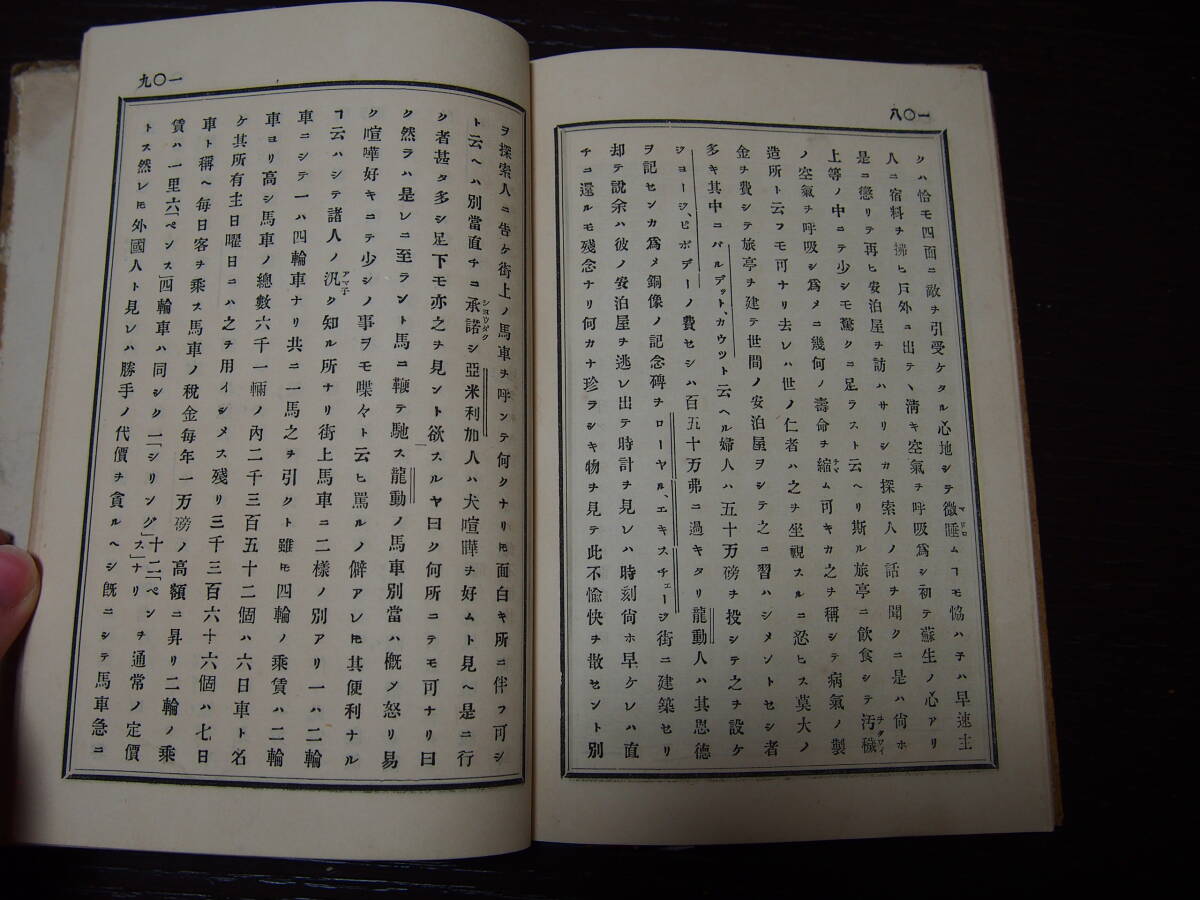 一〇八
クハ恰モ四面ニ敵チ引受ケタル心地シテ微睡ムヿモ恊ハチハ早速主
マドロ
人ニ宿料チ拂ヒ戸外ニ出テヽ淸キ空氣チ呼吸爲シ初テ蘇生ノ心アリ
是ニ懲リテ再ヒ安泊屋チ訪ハサリシカ探索人ノ話チ聞クニ是ハ尙ホ
上等ノ中ニテ少シモ驚クニ足ラスト云ヘリ斯ル旅亭ニ飮食シテ汚穢
ノ空氣チ呼吸シ爲メニ幾何ノ壽命チ縮ム可キカ之チ稱シテ病氣ノ製
チヾ
造所ト云フモ可ナリ去レハ世ノ仁者ハ之チ坐視スルニ忍ヒス莫大ノ
金チ費シテ旅亭チ建テ世間ノ安泊屋ヲシテ之ニ習ハシメントセシ者
多キ其中ニバルデット、カウツト云ヘル婦人ハ五十万磅チ投シテ之チ設ケ
ジョージ、ピボデーノ費セシハ百五十万弗ニ過キタリ龍動人ハ其恩德
ヲ記センカ爲メ銅像ノ記念碑チローヤル、エキスチェージ街ニ建築セリ
却テ說余ハ彼ノ安泊屋チ逃レ出テ時計チ見レハ時刻尙ホ早ケレハ直
チニ還ルモ殘念ナリ何カナ珍ラシキ物チ見テ此不愉快チ散セント別
一〇九
ヲ探索人ニ吿ケ街上ノ馬車チ呼ンテ何クナリヒ面白キ所ニ伴フ可シ
ト云ヘハ別當直チニ承諾シ亞米利加人ハ犬喧嘩チ好ムト見ヘ是ニ行
ショウダク
ク者甚タ多シ足下モ亦之チ見ント欲スルヤ曰ク何所ニテモ可ナリ曰
ク然ラハ是レニ至ラント馬ニ鞭テ馳ス龍動ノ馬車別當ハ槪メ怒リ易
ク喧嘩好キニテ少シノ事ヲモ喋々ト云ヒ罵ルノ僻アレヒ其便利ナル
ヿ云ハシテ諸人ノ汎ク知ル所ナリ街上馬車ニ二樣ノ別アリ一ハ二輪
アマ子
車ニシテ一ハ四輪車ナリ共ニ一馬之チ引クト雖ヒ四輪ノ乘賃ハ二輪
車ヨリ高シ馬車ノ總數六千一輛ノ內二千三百五十二個ハ六日車ト名
ケ其所有主日曜日ニハ之チ用イシメス殘リ三千三百六十六個ハ七日
車ト稱ヘ每日客チ乘ス馬車ノ稅金每年一万磅ノ高額ニ昇リ二輪ノ乘
賃ハ一里六「ペンス」四輪車ハ同シク一「シリング」十二「ペンス」ナリ
トス然レヒ外國人ト見レハ勝手ノ代價チ貪ルヘシ旣ニシテ馬車急ニ